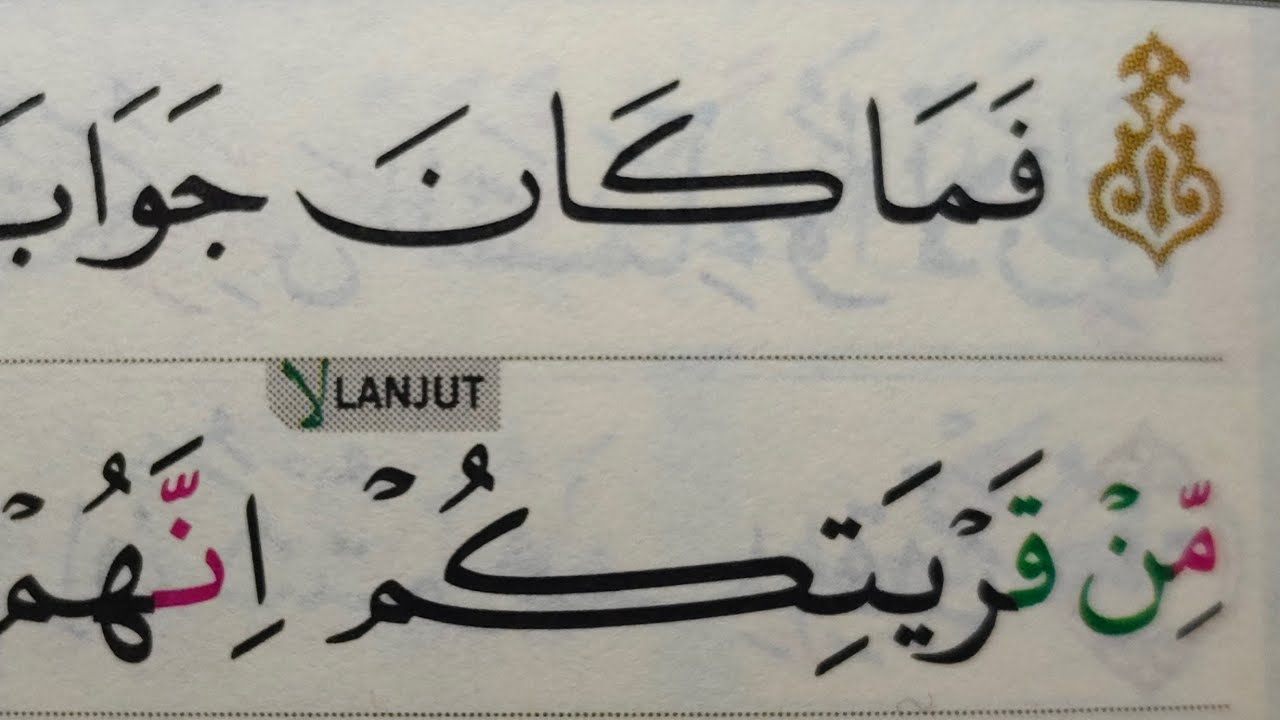 فَمَا كَانَ جَوَابَ
لا LANJUT
مِّنْ قَرْيَتِكُمْ اِنَّهُمْ